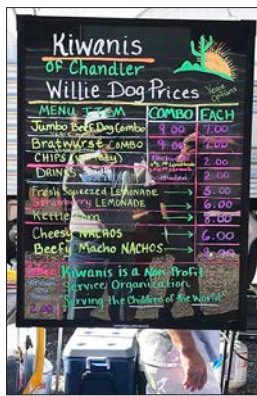 Kiwanis
of Chandler
Willie Dog Prices
Veggie Options
MENU ITEM COMBO EACH
Jumbo Beef Dog Combo 9.00 7.00
Bratwurst COMBO 9.00 7.00
CHIPS (variety) 2.00
DRINKS 2.00
Fresh Squeezed LEMONADE 5.00
Strawberry LEMONADE 6.00
Kettle Corn 8.00
Cheesy NACHOS 6.00
Beefy Macho NACHOS
Kiwanis is a Non Profit
Service Organization
"Serving the Children of the World"
2.00